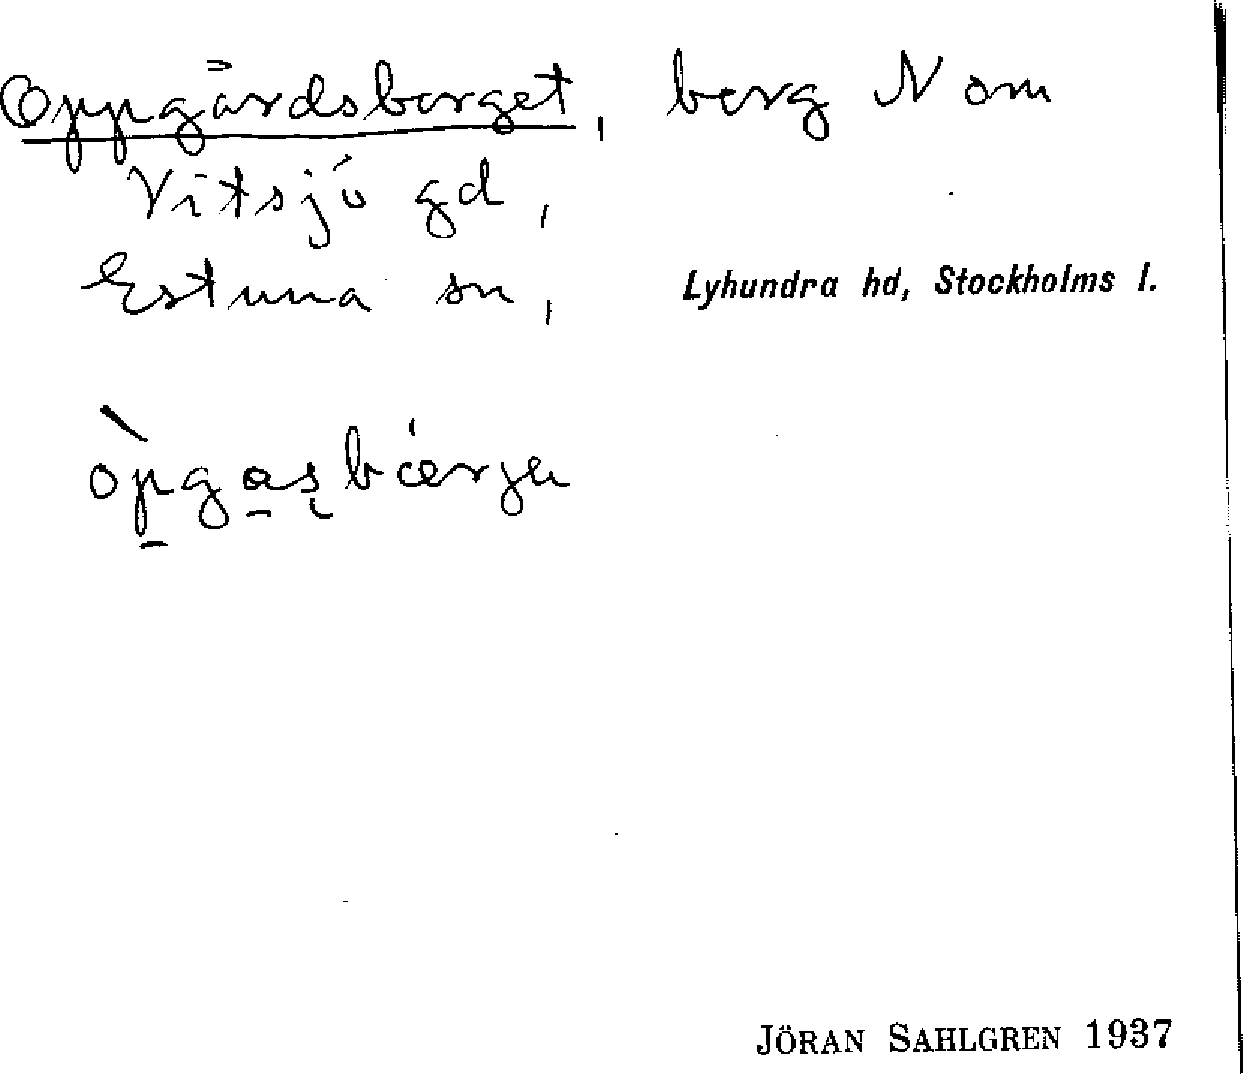 Oppgårdsberget, berg N om
Vitsjö gd,
Estuna sn, Lyhundra hd, Stockholms l.
òpgas̨bǽrjɛ
JÖRAN SAHLGREN 1937